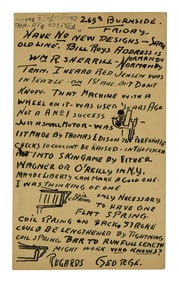 269 BURNSIDE.
FRIDAY.
HAVE NO NEW DESIGNS – SAME
OLD LINE. BILL ROYS ADDRESS IS
WM R SHERRILL – NORMANDY
TENN. I HEARD RED JENSEN WAS
IN SEATTLE – OR IS AVE. BUT DONT
KNOW. THAT MACHINE WITH A
WHEEL ON IT – WAS USED YEARS AGO
NOT A No 1 SUCCESS
WITH A SMALL MOTOR – WAS
IT MADE BY THOMAS EDISON TO PERFORATE
CHECKS SO COULDNT BE RAISED – IN
INTO SKIN GAME BY EITHER
WAGNER OR O'REILLY IN N.Y.
MAYBE LIBERTY CAN MAKE A GOOD ONE.
I WAS THINKING OF ONE
ONLY NECESSARY
TO HAVE ONE
FLAT SPRING.
COIL SPRING ON BACK STROKE
COULD BE LENGTHENED BY TIGHTNING
COIL SPRING. BAR TO RUN FULL LENGTH
MIGHT WORK WHO KNOWS?
REGARDS GEORGE.